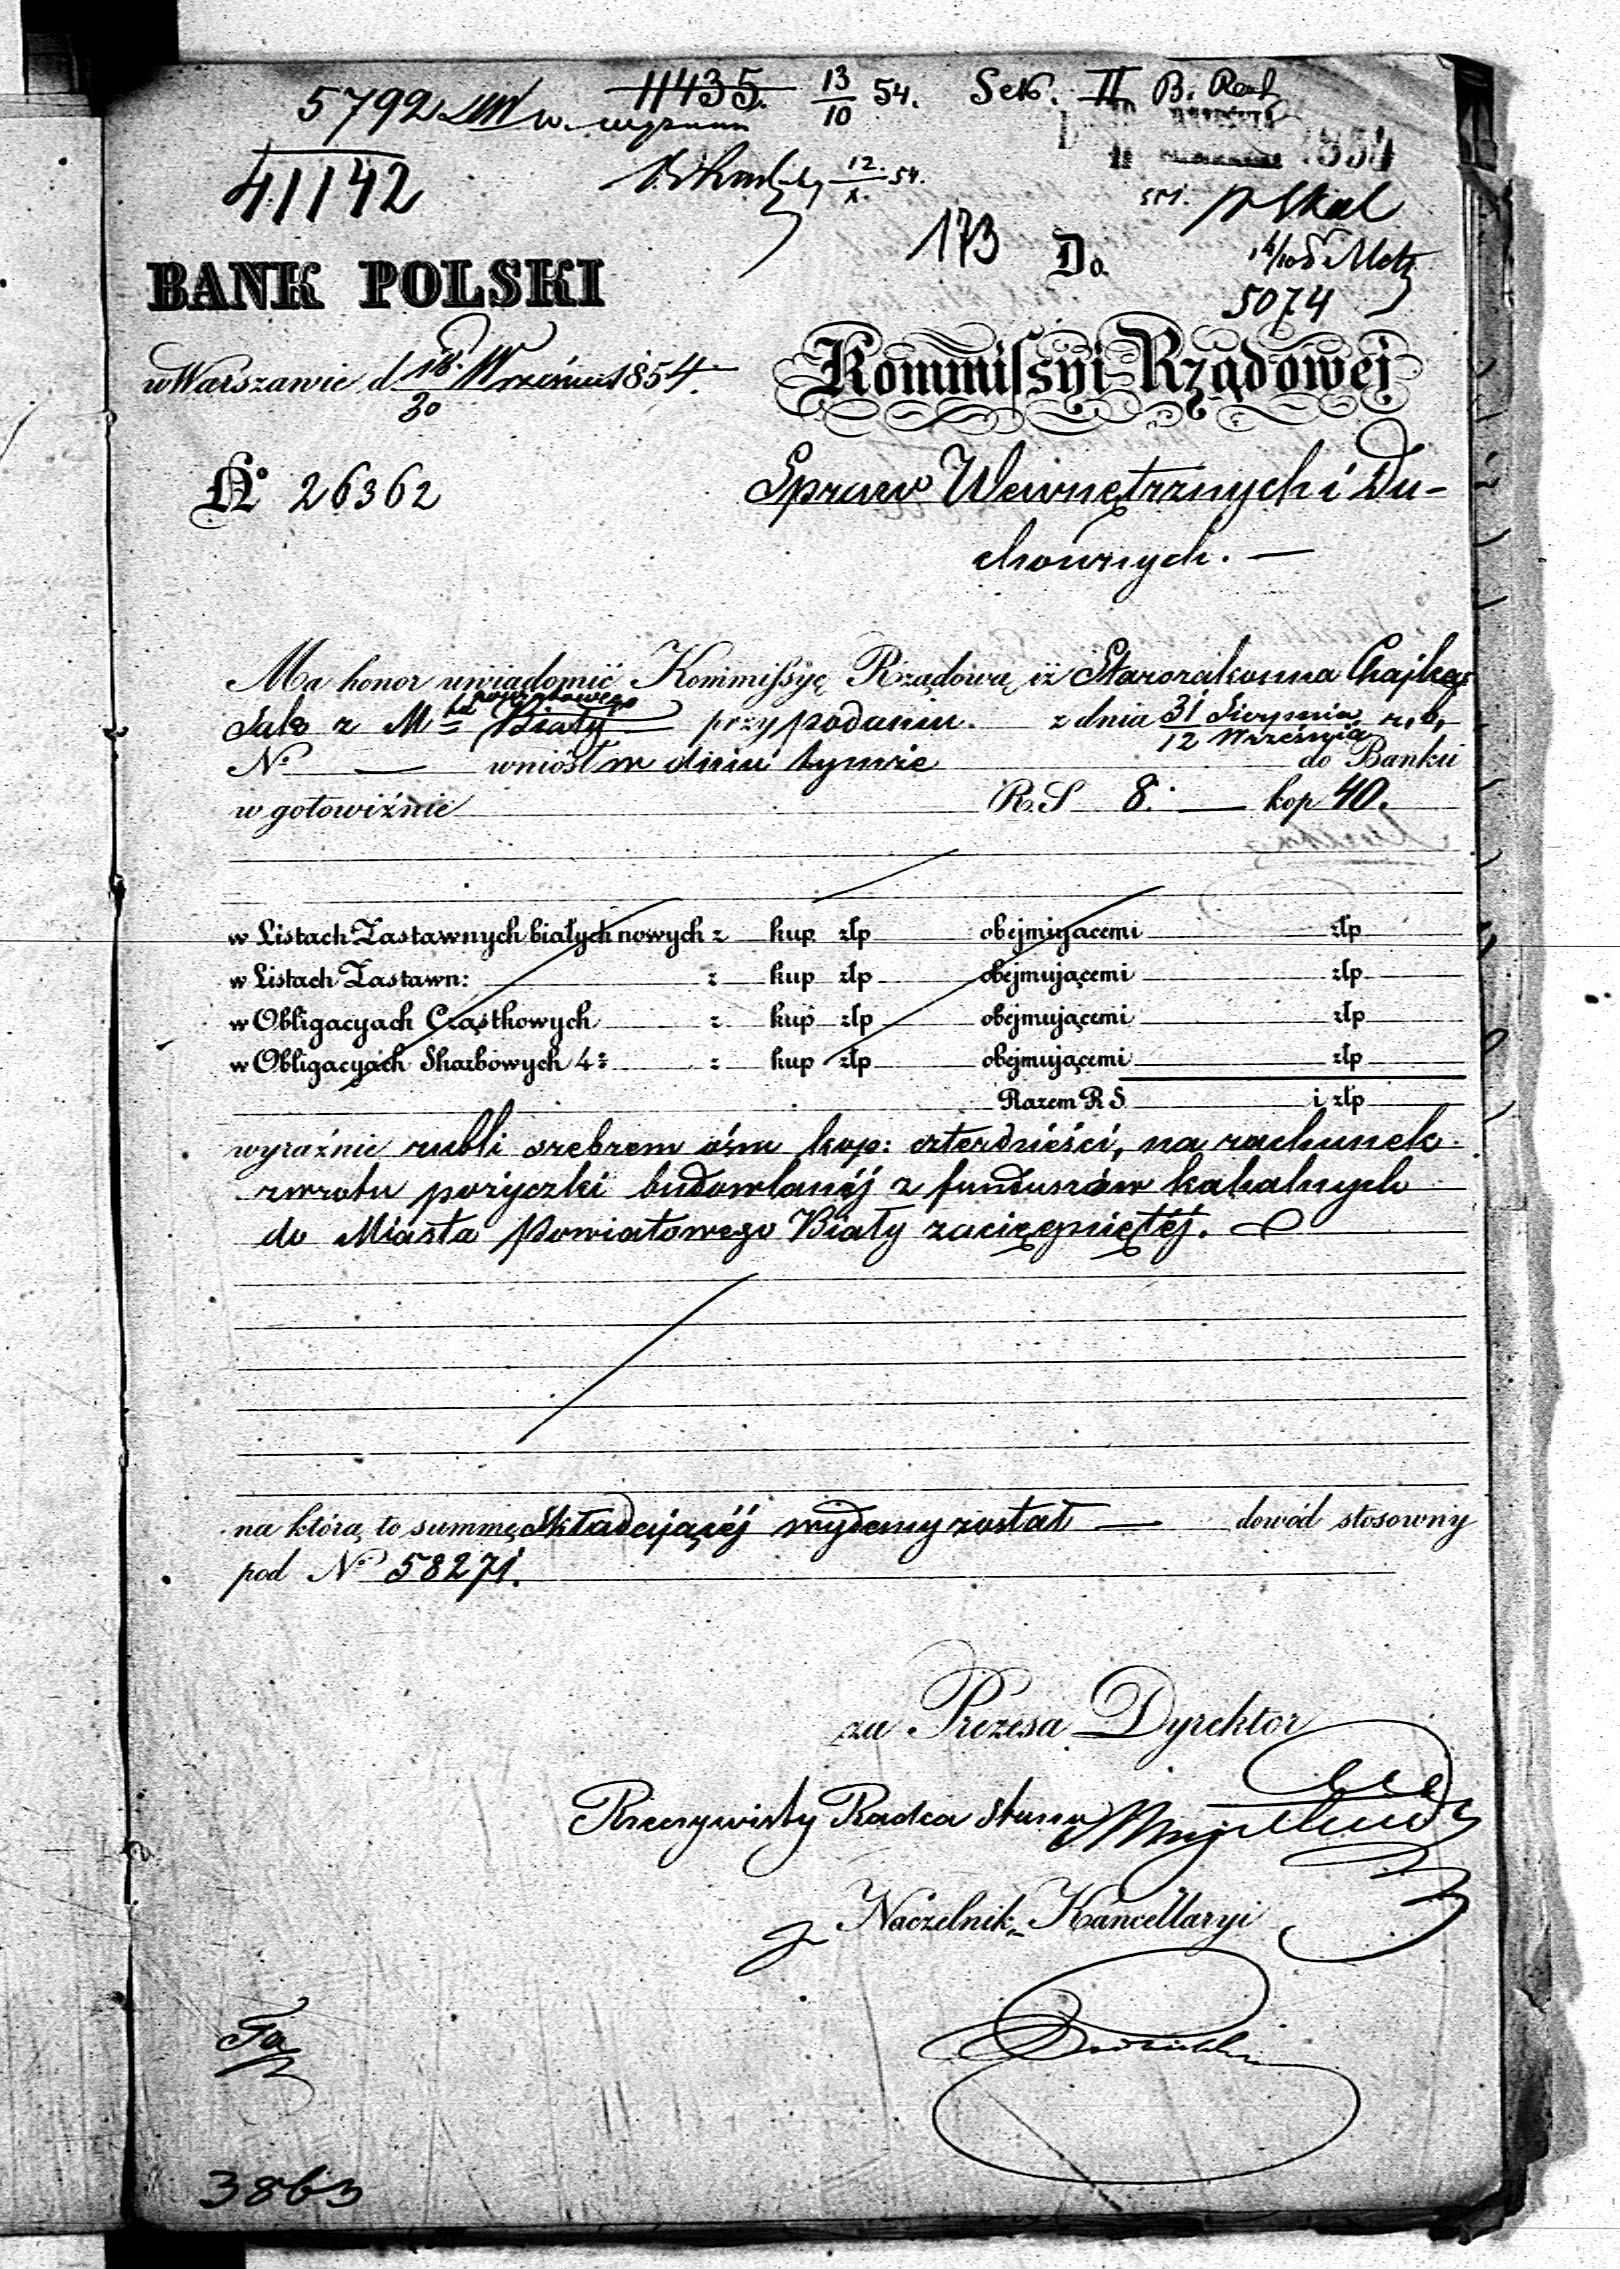 5792 11435. 13/10 54. Sek. II B.
41142 12/X. 54. 1854
173 Do
5074
BANK POLSKI
w Warszawie d 18/30 Września 1854.
Kommissyi Rządowej
No 26362
Spraw Wewnętrznych i Du-
chownych. —
Ma honor uwiadomić Kommissyę Rządową iż Starozakonna Chajka
powiatowego
z Mta Biały — przy podaniu z dnia 31 Sierpnia/12 Września r. b.
No — wniósł w dniu tymże do Banku
w gotowiźnie R. S 8. — kop 40.
w Listach Zastawnych białych nowych z kup złp obejmującemi złp
w Listach Zastawn: z kup złp obejmującemi złp
w Obligacyach Cząstkowych z kup złp obejmującemi złp
w Obligacyach Skarbowych 4% z kup złp obejmującemi złp
Razem R S i złp
wyraźnie rubli srebrem ośm kop: czterdzieści, na rachunek
zwrotu pożyczki budowlanéj z funduszów kahalnych
do Miasta Powiatowego Biały zaciągniętéj.
na którą to summę składającéj wydany został — dowód stosowny
pod No 58271.
za Prezesa Dyrektor
Rzeczywisty Radca Stanu
Naczelnik Kancellaryi
3863